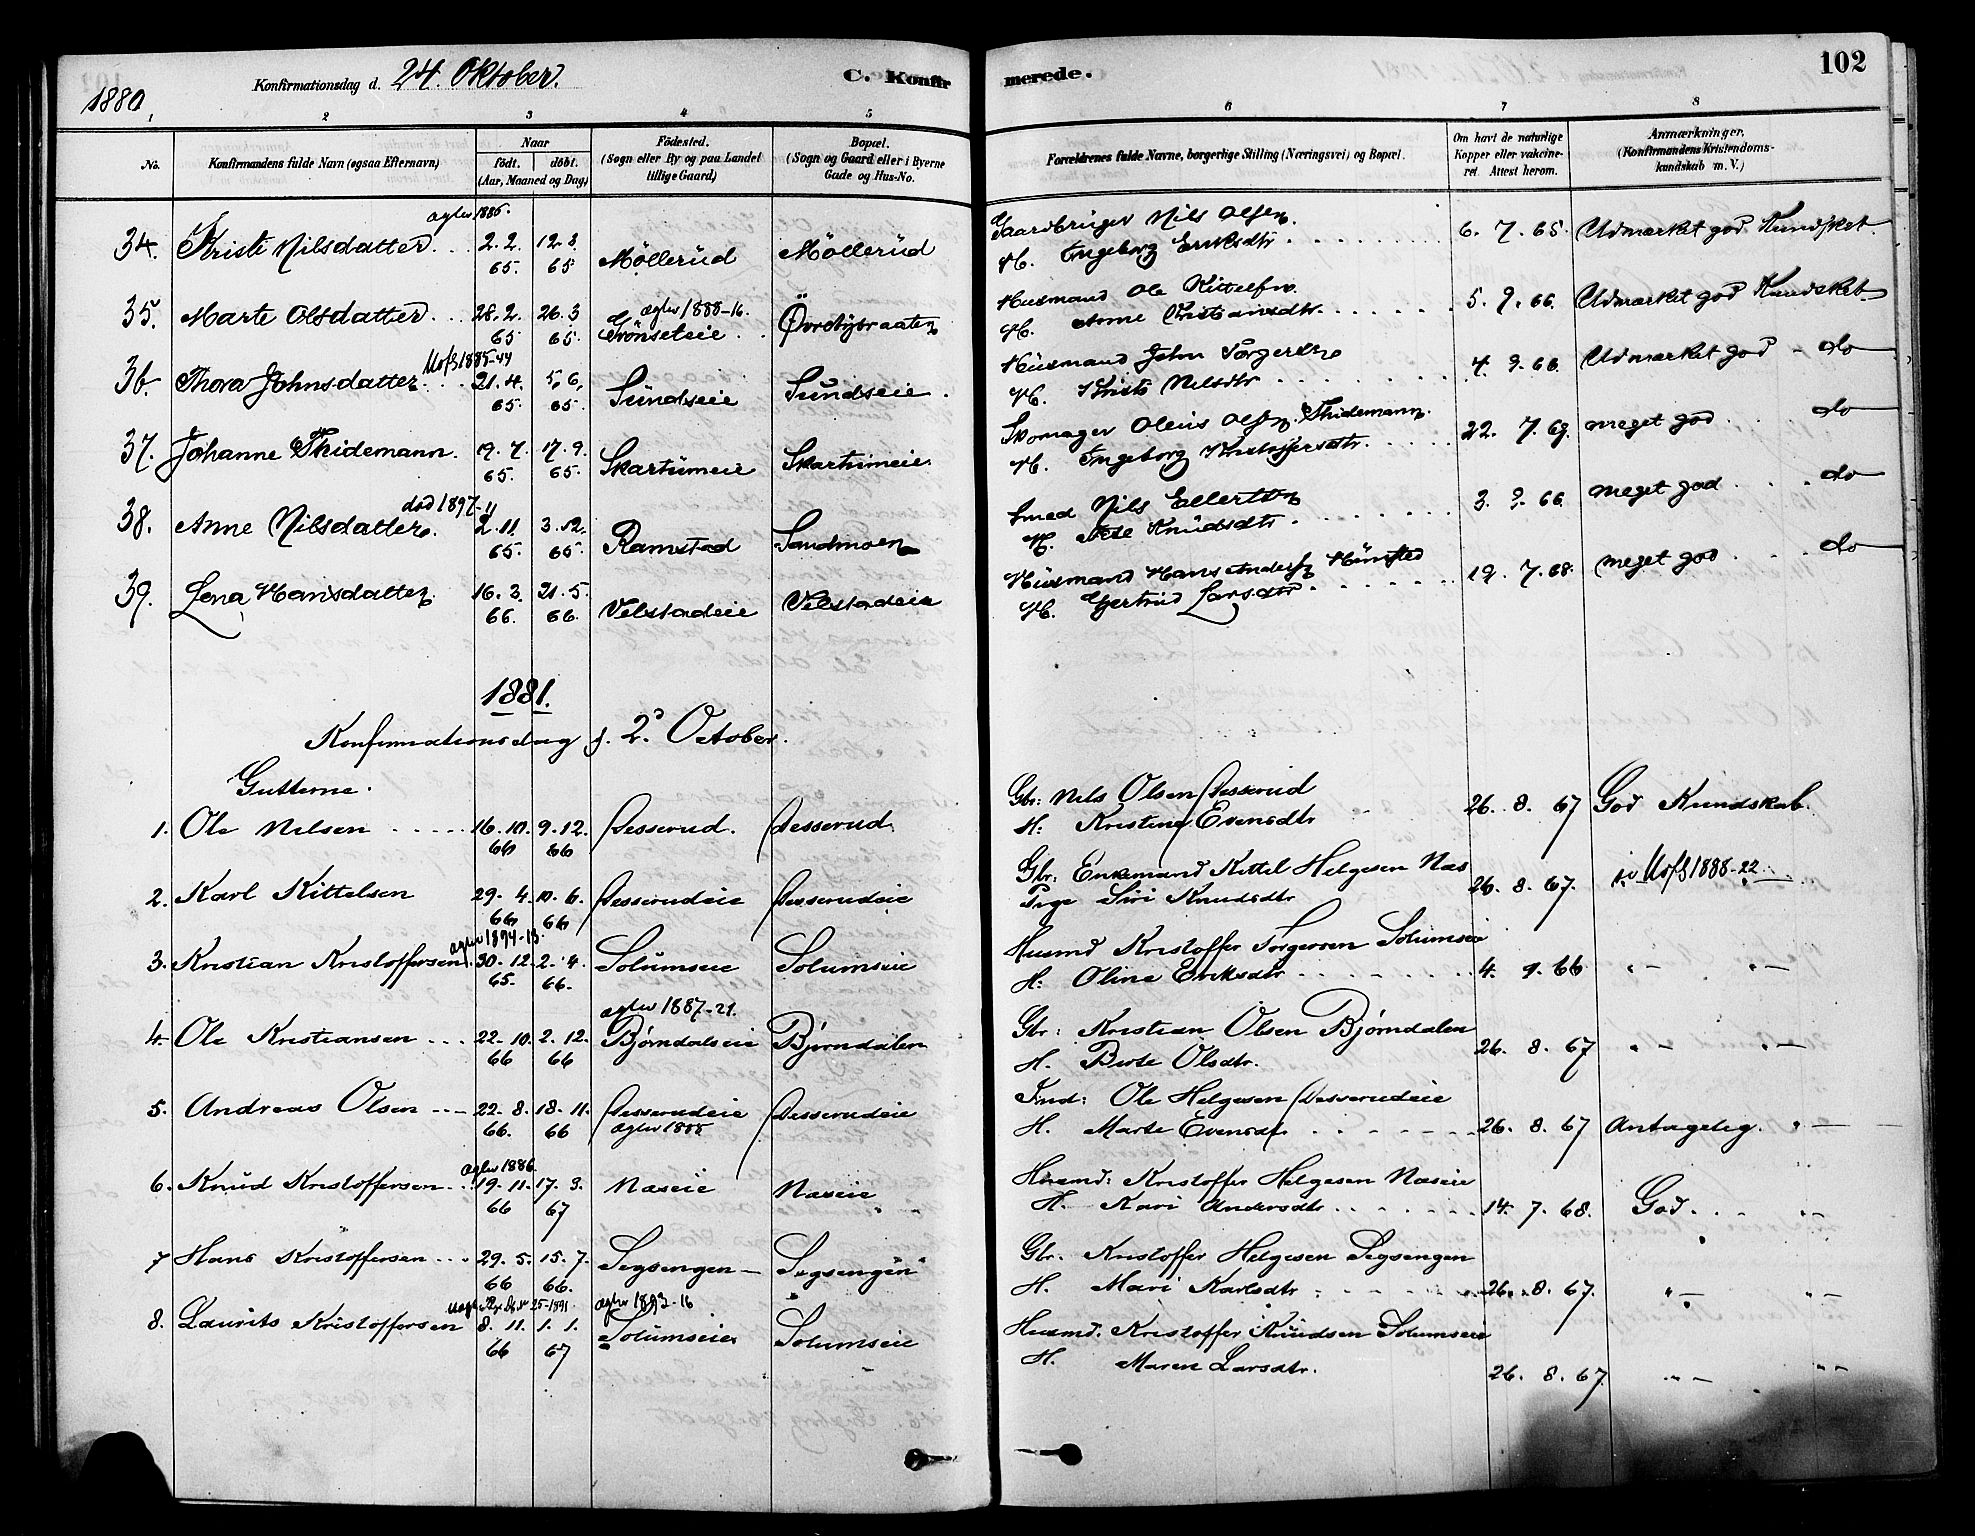 1880.
Konfirmationsdag d. 24. Oktober.
C. Konfirmerede.
102
1 2 3 4 5 6 7 8
No.
Konfirmandens fulde Navn (ogsaa Efternavn)
Naar
født. døbt.
(Aar, Maaned og Dag)
Fødested.
(Sogn eller By og paa Landet
tillige Gaard)
Bopæl.
(Sogn og Gaard eller i Byerne
Gade og Hus-No.
Forældrenes fulde Navne, borgerlige Stilling (Næringsvei) og Bopæl.
Om havt de naturlige
Kopper eller vakcine-
ret. Attest herom.
Anmærkninger.
(Konfirmandens Kristendoms-
kundskab m. V.)
agbev 1885.
34. Kristi Nilsdatter. 2.2. 65. 12.3 65 Møllerud Møllerud Gaardbruger Nils Olsen. 6. 7. 65. Udmærket god Kundsket
H. Ingeborg Eriksdtr
agbev 1888-16.
35. Marte Olsdatter. 28.2. 65 26.3 65. Grønseteie Øvrebybraaten Husmand Ole Kittelsen. 5. 9. 66. Udmærket god Kundsket
H. Anne Kristiansdtr.
Uofs 1885-44
36. Thora Johnsdatter. 21.4. 65. 5.6. 65. Sundseie Sundseie. Husmand John Torgersen 4. 9. 66. Udmærket god - do
H. Kristi Nilsdtr
37. Johanne Thidemann. 19.7. 65. 17.9. 65. Skartumeie Skartumeie. Skomager Oleus Olsen Thidemann. 22. 7. 69. meget god do
H. Ingeborg Kristoffersdtr.
død 1897-11
38. Anne Nilsdatter. 2.11. 65. 3.12. 65. Ramstad Sandmoen Smed Nils Ellertsen 3. 9. 66. meget god do
H. Knudsdtr.
39. Lena Hansdatter. 16.3. 66. 21.5. 66. Velstadeie Velstadeie Husmand Hans Andersen 19. 7. 68. meget god do
H. Gjertrud Larsdtr.
1881.
Konfirmationsdag d. 2d October.
Gutterne.
1. Ole Nilsen 16.10. 66 9.12. 66 Desserud. Desserud Gbr: Nils Olsen Desserud 26. 8. 67 God Kundskab.
H. Kristine Evensdtr
2. Karl Kittelsen 29.4. 66 10.6. 66 Desserudeie Desserudeie Gbr: Enkemand Kittel Helgesen Næs 26. 8. 67. Uofs 1888-22.
Pige Siri Knudsdtr
agbev 1894-13.
3. Kristian Kristoffersen. 30.12. 65. 2.4. 66. Solumseie Solumseie Husmd Kristoffer Torgersen Solumseie 4. 9. 66 " - " -
H: Oline Eriksdtr
agbev 1887-21.
4. Ole Kristiansen 22.10. 66 2.12. 66 Bjørndalseie Bjørndalen Gbr: Kristian Olsen Bjørndalen 26. 8. 67 " - " -
H. Berte Olsdtr.
5. Andreas Olsen 22.8. 66. 18.11. 66 Desserudeie Desserudeie Ind: Ole Helgesen Desserudeie 26. 8. 67 Antagelig. " -
agbev 1885
H. Marte Evensdr.
agbev 1886.
6. Knud Kristoffersen 19.11. 66 17.3. 67 Næseie Næseie Husmd: Kristoffer Helgesen Næseie 14. 7. 68. God. " -
H. Kari Andersdtr
7 Hans Kristoffersen 29.5. 66 15.7. 66. Segsengen Segsengen Gbr. Kristoffer Helgesen Segsengen 26. 8. 67. " - " -
H. Mari Karlsdtr
25-1891. agbev 1893-16
8. Laurits Kristoffersen 8.11. 66 1.1. 67 Solumseie Solumseie Husmd. Kristoffer Knudsen Solumseie 26. 8. 67. " - " -
H. Maren Larsdtr.